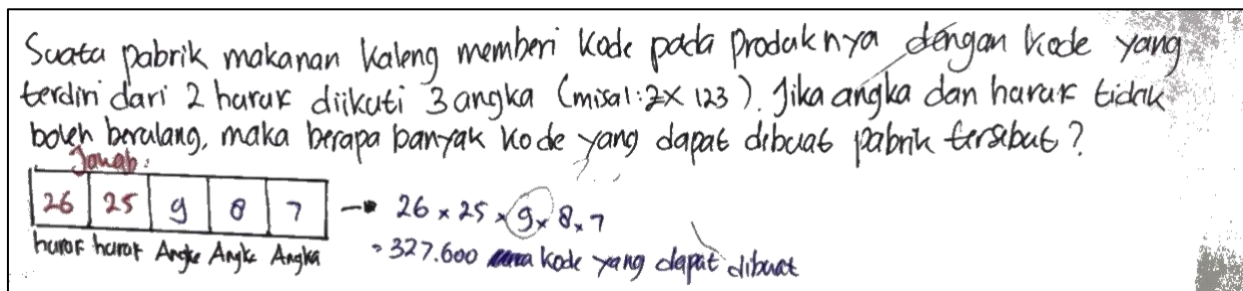 Suatu pabrik makanan kaleng memberi kode pada produknya dengan kode yang
terdiri dari 2 huruf diikuti 3 angka (misal: ZX 123). Jika angka dan huruf tidak
boleh berulang, maka berapa banyak kode yang dapat dibuat pabrik tersebut?
Jawab:
26 25 9 8 7 → 26 × 25 × 9 × 8 × 7
huruf huruf Angka Angka Angka = 327.600 kode yang dapat dibuat